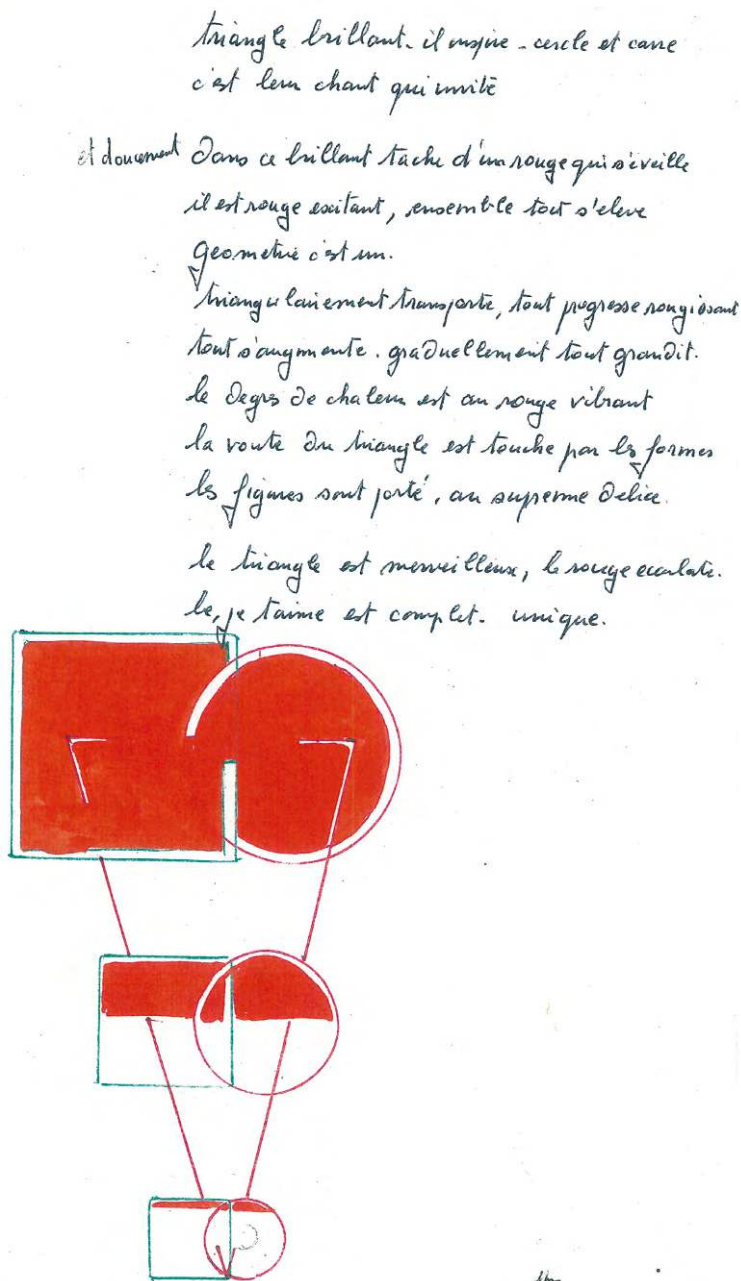 triangle brillant. il inspire - cercle et carre
c'est leur chant qui invite
et doucement Dans ce brillant tache d'un rouge qui s'éveille
il est rouge exitant, ensemble tout s'eleve
geometrie c'est un.
triangulairement transporte, tout progresse rougissant
tout s'augmente. graduellement tout grandit.
le degres de chaleur est au rouge vibrant
la voute du triangle est touche par les formes
les figures sont porté, au supreme delice.
le triangle est merveilleux, le rouge ecarlate.
le, je t'aime est complet. unique.